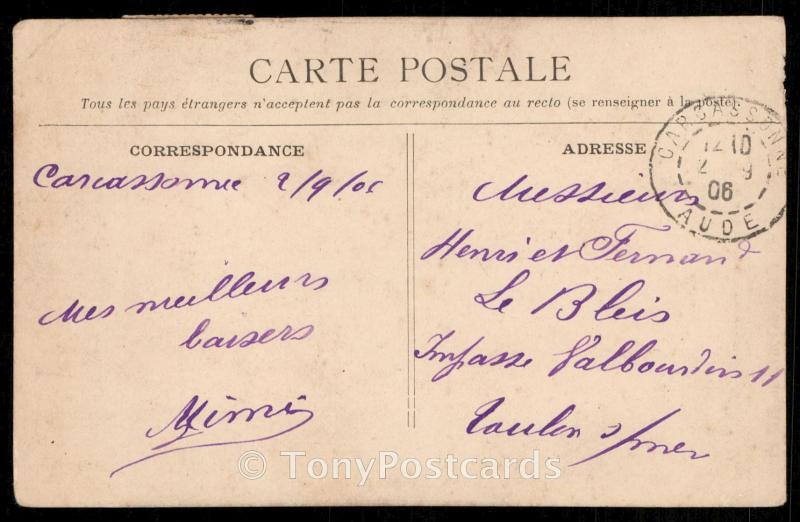 CARTE POSTALE
Tous les pays étrangers n'acceptent pas la correspondance au recto (se renseigner à la poste).
CORRESPONDANCE
Carcassonne 2/9/06
Mes meilleurs
baisers
Mimi
ADRESSE
Messieurs
Henri et Fernand
Le Bleis
Impasse Valbourdin 11
Toulon s/mer
CARCASSONNE
12 10
2 9
06
AUDE
© TonyPostcards